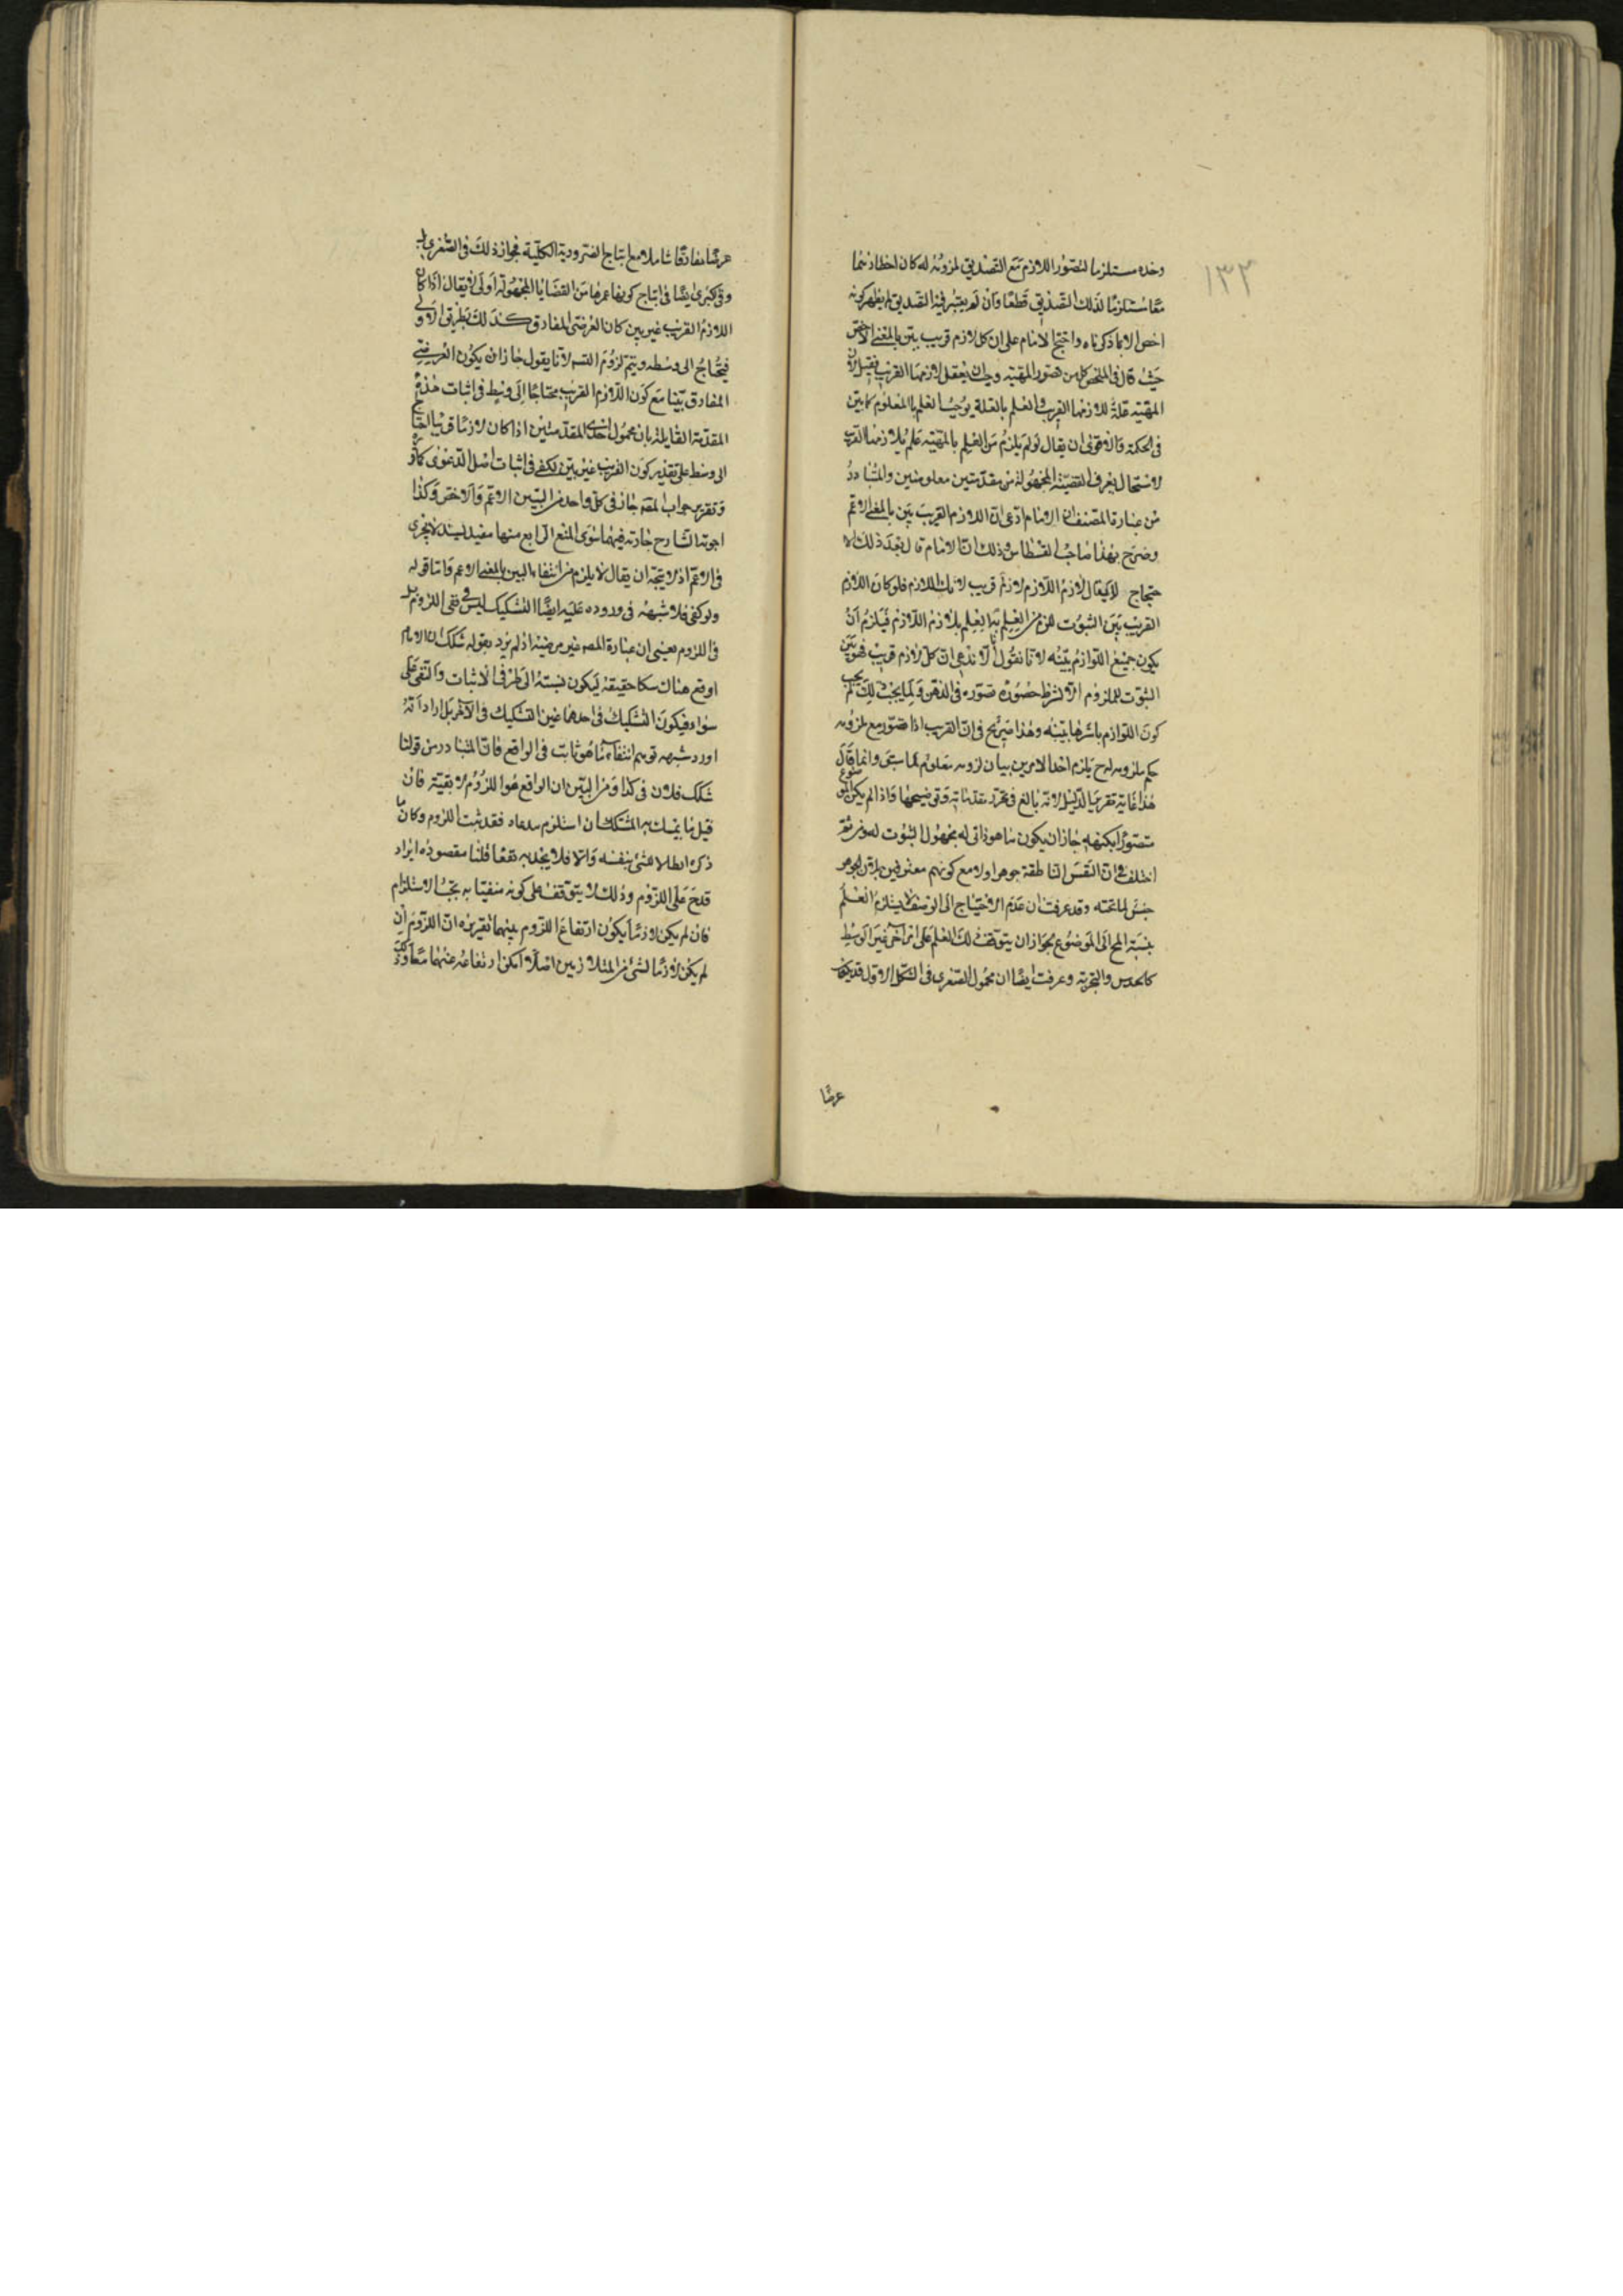 ١٣٢
وحده مستلزما لتصور اللازم مع التصديق لمزومه له كان اخطارهما
معًا مستلزمًا لذلك التصديق قطعًا وان لم يعتبر فيه التصديق لم يظهر كونه
اخص الا بما ذكرناه واحتج الامام على ان كل لازم قريب بيّن بالمعنى الاخص
حيث قال في الملخص كل من تصور المهية وجب ان يعقل لازمها القريب فقيل لان
المهية علة للازمها القريب والعلم بالعلة يوجب العلم بالمعلوم كما بيّن
في الحكمة والاقوى ان يقال لو لم يلزم من العلم بالمهية علم بلازمها القريب
لاستحال تعرف القضية المجهولة من مقدمتين معلومتين والمتبادر
من عبارة المصنف ان الامام ادعى ان اللازم القريب بيّن بالمعنى الاعم
وصرح بهذا صاحب القسطاس وذلك ان الامام قال بعد ذلك الا
حتجاج لا يقال لازم اللازم لازم قريب لذلك اللازم فلو كان اللازم
القريب بيّن الثبوت للزم من العلم بها العلم بلازم اللازم فيلزم ان
يكون جميع اللوازم بيّنه لانا نقول انا لا ندعي ان كل لازم قريب فهو بيّن
الثبوت للملزوم الا بشرط حضور تصوره في الذهن ولما يجب ذلك لم يجب
كون اللوازم باسرها بيّنه وهذا صريح في ان القريب اذا تصور مع ملزومه
حكم بلزومه له ح يلزم احد الامرين بيان لزومه معلوم مما سبق وانما قال
هذا غاية تقريبا لدليل لانه بالغ في تحرير مقدماته وتوضيحها واذا لم يكن الموضوع
متصورًا بكنهه جاز ان يكون ما هو ذاتي له مجهول الثبوت له ومن ثم
اختلف في ان النفس الناطقة جوهر اولا مع كونهم معترفين بان الجوهر
جنس لما تحته وقد عرفت ان عدم الاحتياج الى الوسط لا يستلزم العلم
بنسبة المح الى الموضوع بجواز ان يتوقف ذلك العلم على امر آخر غير الوسط
كالحدس والتجربة وعرفت ايضًا ان محمول الصغرى في الشكل الاول قد يكون
عرضًا
عرضًا مفارقًا شاملا مع انتاج الضرورية الكلية فجواز ذلك في الصغرى بل
وفي كبرى ايضًا في انتاج كونها غيرها من القضايا المجهولة اولى لا يقال اذا كان
اللازم القريب غير بين كان العرضي المفارق كذلك بطريق الاولى
فيحتاج الى وسط ويتم لزوم التسـ لانا نقول جاز ان يكون العرضي
المفارق بيّنا مع كون اللازم القريب محتاجًا الى وسط في اثبات هذه
المقدمة القايلة بان محمول احدى المقدمتين اذا كان لازمًا قريبا احتاج
الى وسط على تقدير كون القريب غير بيّن يكفي في اثبات اصل الدعوى كما
وتقرير جواب المصـ جاز في كل واحد من البيّن الاعم والاخص وكذا
اجوبة الشارح جارية فيهما سوى المنع الرابع منها مقيد بسند لا يجري
في الاعم اذ لا يتجه ان يقال لا يلزم من انتفاء البين بالمعنى الاعم واما قوله
ولو كفى فلا شبهة في وروده عليه ايضًا التشكيك ليس في نفي اللزوم بل
في اللزوم يعني ان عبارة المصـ غير مرضية اذ لم يرد بقوله شكك ان الامام
اوقع هناك شكا حقيقة ليكون نسبته الى طرفي الاثبات والنفي على
سواء فيكون التشكيك في احدهما عين التشكيك في الآخر بل اراد انه
اورد شبهه توهم انتفاء ما هو ثابت في الواقع فان المتبادر من قولنا
شكك فلان في كذا ومن البيّن ان الواقع هو اللزوم لا بقيته فان
قيل ما يتمسك به المشكك ان استلزم مدعاه فقد ثبت اللزوم وكان ما
ذكره ابطالا للشيء بنفسه والا فلا يجديه نفعًا قلنا مقصوده ايراد
قدح على اللزوم وذلك لا يتوقف على كونه منفيا به بحسب الاستلزام
فان لم يكن لازمًا يكون ارتفاع اللزوم بينهما تقريره ان اللزوم ان
لم يكن لازمًا لشيء من المتلازمين اصلًا امكن ارتفاعه عنهما معًا وذلك